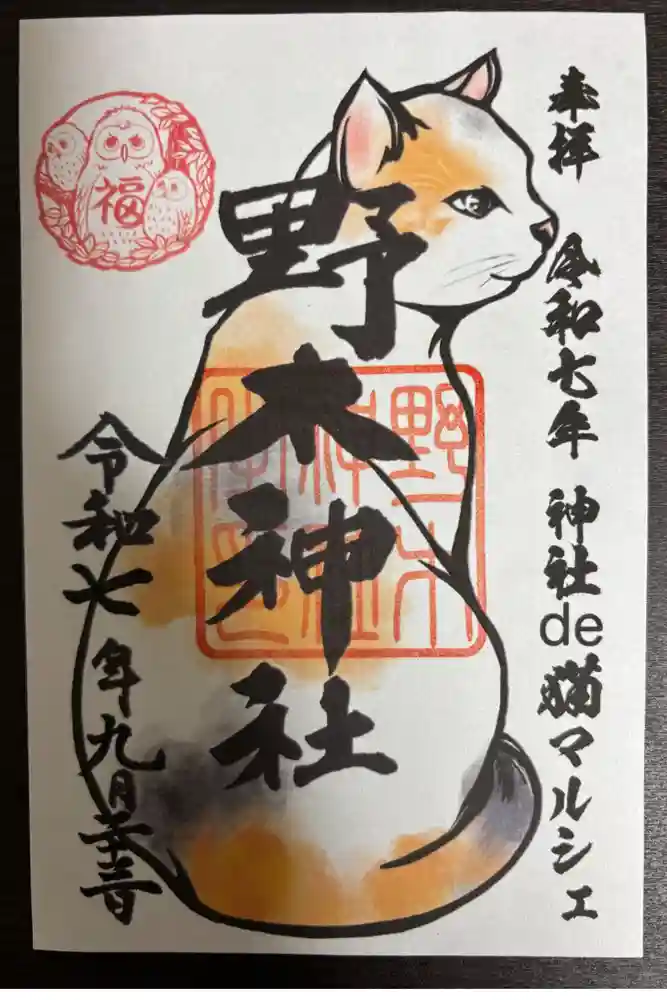 奉拝 令和七年 神社de猫マルシェ
福
野木神社
令和七年九月吉日